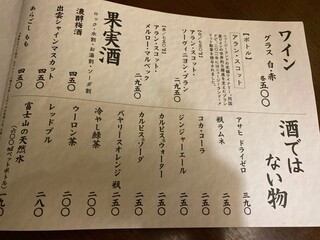 ワイン
グラス 白・赤 各五〇〇
【ボトル】
アラン・スコット
アラン・スコット
ソーヴィニヨン・ブラン
二九五〇
アラン・スコット
メルロー・マルベック
二九五〇
果実酒
ロック・水割・お湯割・ソーダ割
濃醇梅酒 四五〇
出雲シャインマスカット 四五〇
あらごしもも 四五〇
酒ではない物
アサヒ ドライゼロ 三九〇
瓶ラムネ
コカ・コーラ
ジンジャーエール
カルピスウォーター
カルピスソーダ
バヤリースオレンジ 瓶 二五〇
冷やし緑茶 二〇〇
ウーロン茶 二〇〇
レッドブル 二八〇
富士山の天然水